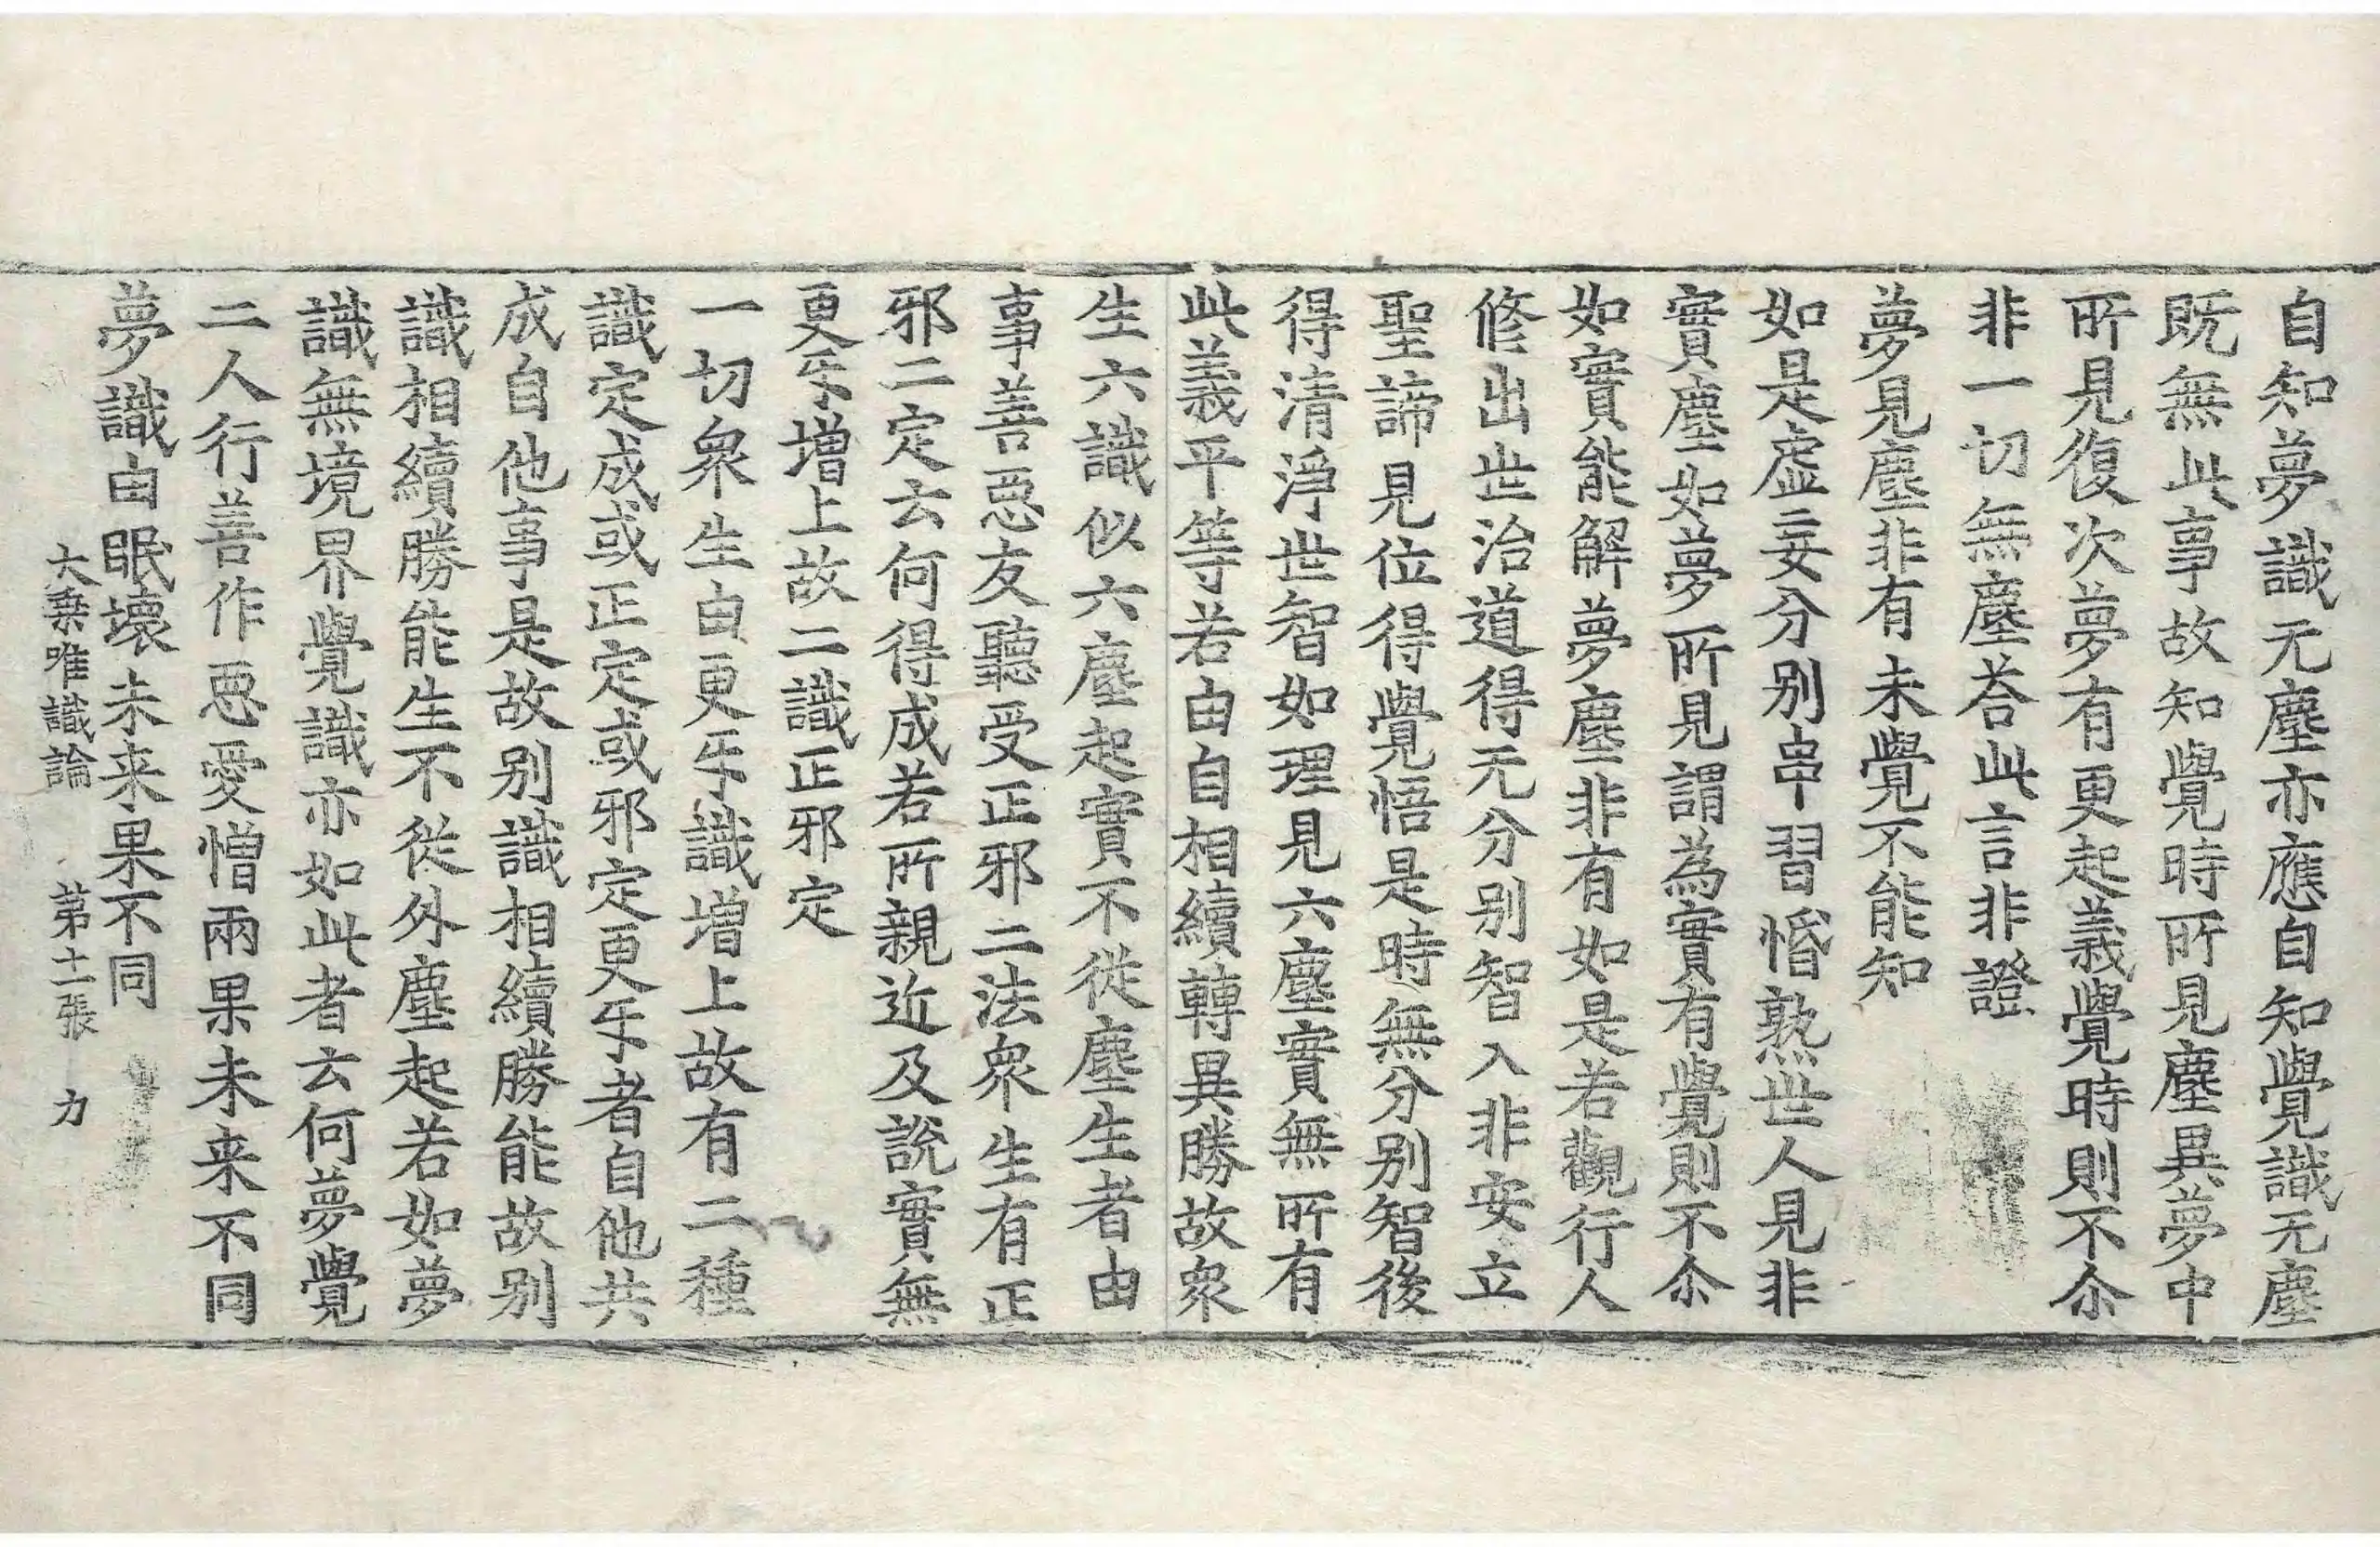 自知夢識无塵亦應自知覺識无塵
既無此事故知覺時所見塵異夢中
所見復次夢有更起義覺時則不尒
非一切無塵荅此言非證
夢見塵非有未覺不能知
如是虛妄分别串習惛熟世人見非
實塵如夢所見謂為實有覺則不尒
如實能解夢塵非有如是若觀行人
修出世治道得无分别智入非安立
聖諦見位得覺悟是時無分别智後
得清淨世智如理見六塵實無所有
此義平等若由自相續轉異勝故衆
生六識似六塵起實不從塵生者由
事善惡友聽受正邪二法衆生有正
邪二定云何得成若所親近及說實無
更㸦增上故二識正邪定
一切衆生由更㸦識增上故有二種
識定成或正定或邪定更㸦者自他共
成自他事是故别識相續勝能故别
識相續勝能生不從外塵起若如夢
識無境界覺識亦如此者云何夢覺
二人行善作惡愛憎兩果未来不同
夢識由眠壞未来果不同
大乗唯識論 第十一張 力